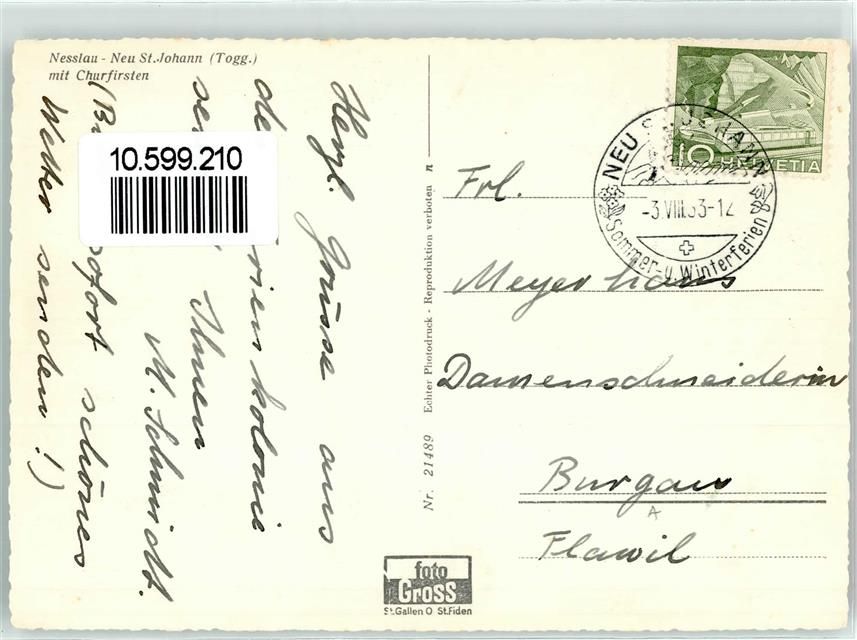 Nesslau - Neu St.Johann (Togg.)
mit Churfirsten
Herzl. Grüsse aus
der
sen Ihnen
M. Schmidt.
sofort schönes
Wetter senden!)
10.599.210
Nr. 21489 Echter Photodruck - Reproduktion verboten n
10 HELVETIA
NEU ST. JOHANN
-3.VIII.53-12
Sommer- u. Winterferien
Frl.
Meyerhans
Damenschneiderin
Burgau
Flawil
foto
GROSS
St.Gallen O St.Fiden